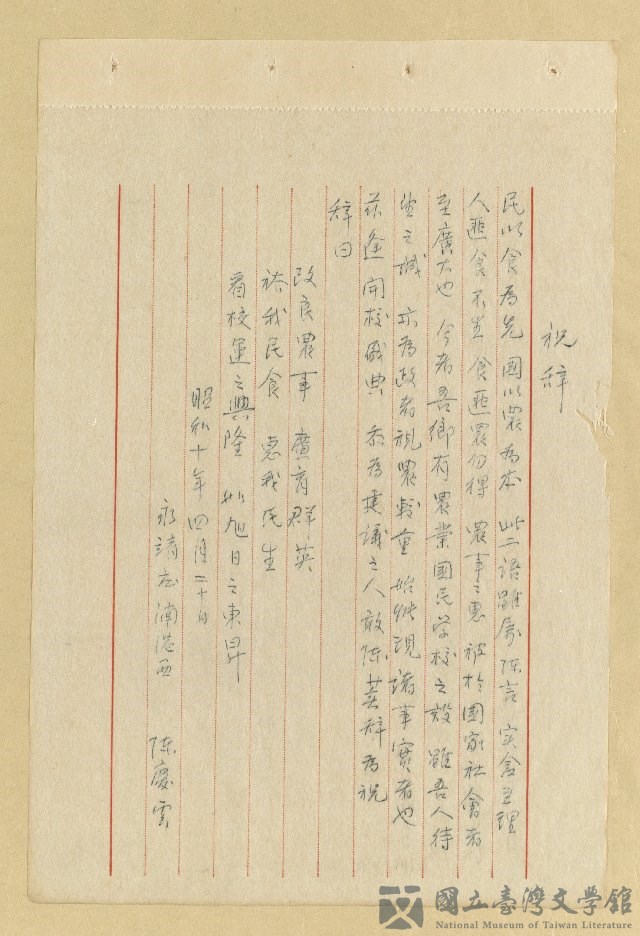 祝辞
民以食為先 國以農為本 此二語雖屬陈言 实含至理
人匪食不生 食匪農勿得 農事之惠 被於國家社會者
至廣大也 今者吾鄉有農業國民学校之設 雖吾人待
望之誠 亦為政者視農較重 始能現諸事實者也
茲逢開校盛典 忝為建議之人 敢陈蕪辞為祝
辞曰
改良農事 廣育群英
裕我民食 惠我民生
看校運之興隆 如旭日之東昇
昭和十年四月二十日
永靖庄湳港西 陈慶雲
國立臺灣文學館
National Museum of Taiwan Literature